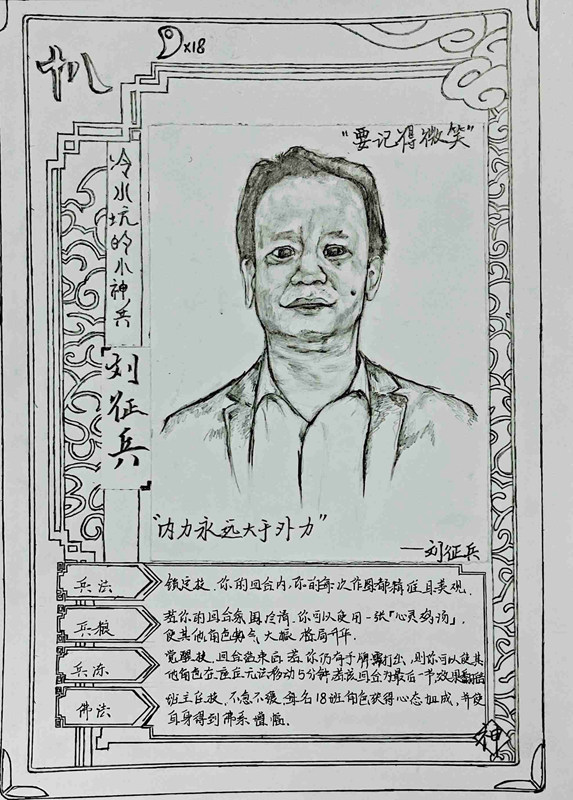 机
x18
"要记得微笑"
冷水坑的小神兵
刘征兵
"内力永远大于外力"
——刘征兵
兵法
锁定技,你的回合内,你的每次作图都精准且美观.
兵粮
若你的回合氛围冷清,你可以使用一张「心灵鸡汤」,
使其他角色勇气、大脑、格局升华.
兵冻
觉醒技,回合结束后,若你仍有手牌需打出,则你可以使其
他角色在座位无法移动5分钟,若该回合为最后一节效果翻倍
佛法
班主任技,不急不缓,每名18班角色获得心态加成,并使
自身得到佛系
神